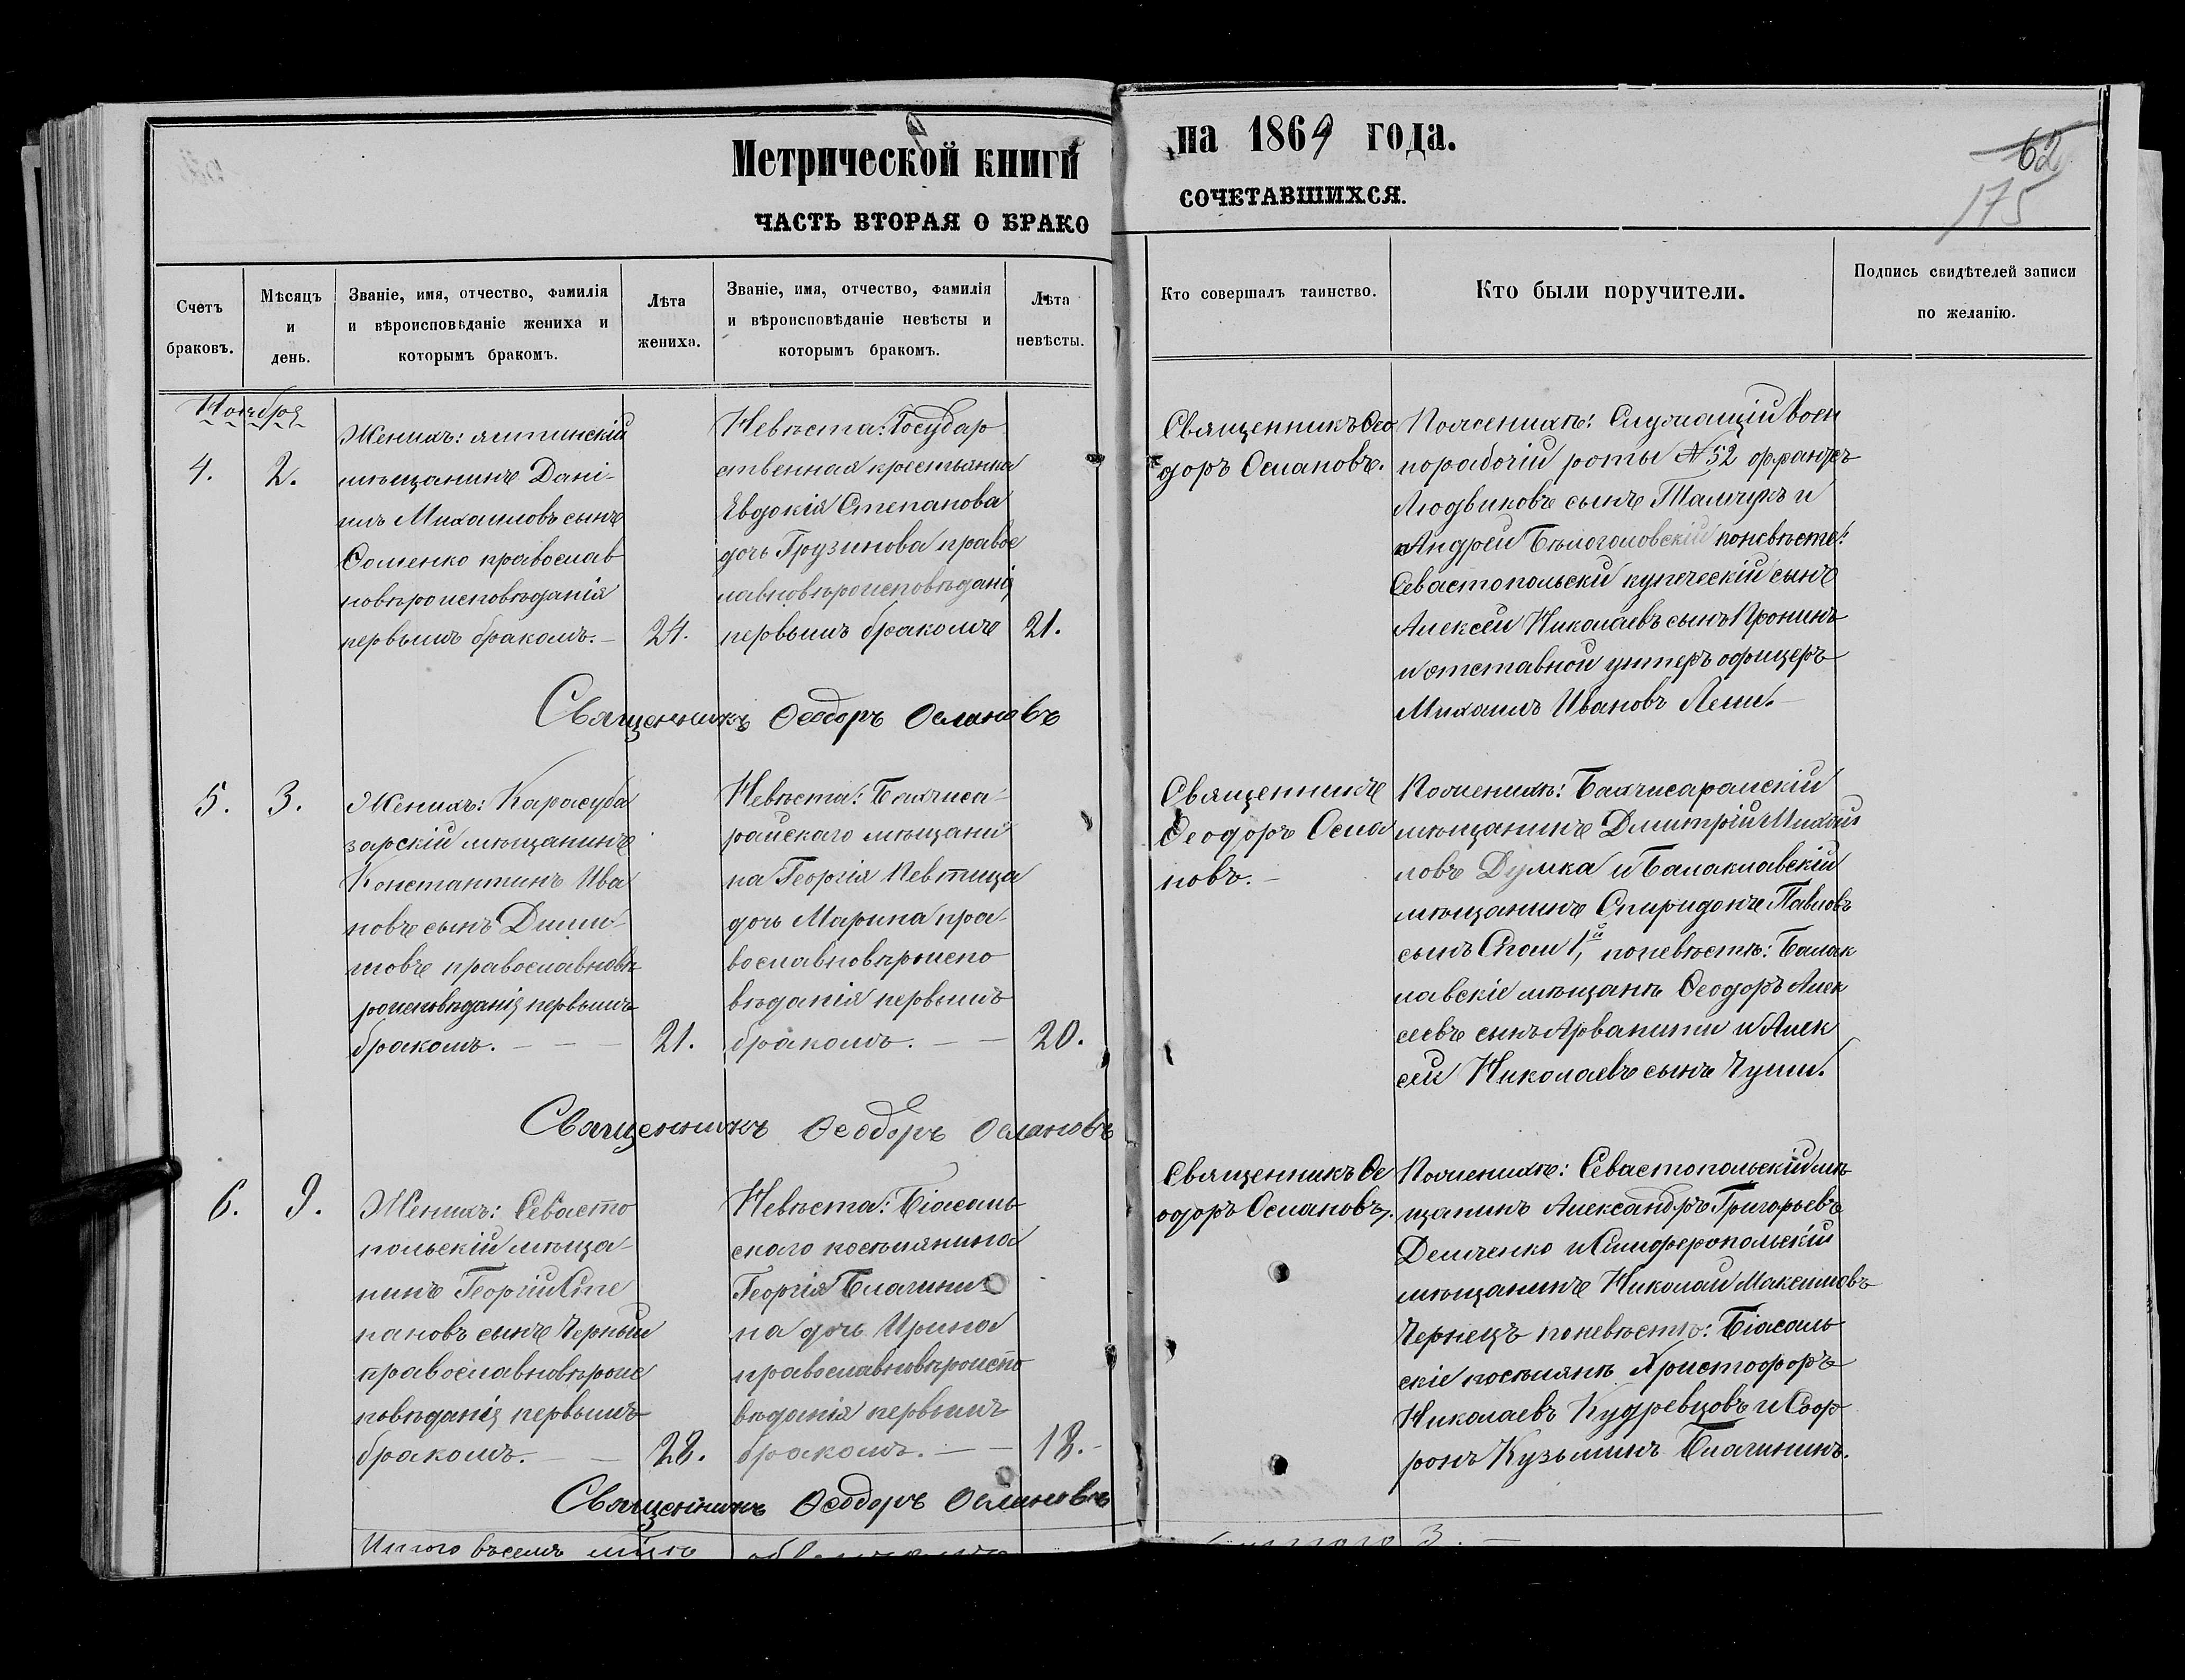 Метрической книги
ЧАСТЬ ВТОРАЯ О БРАКО
на 1869 года.
СОЧЕТАВШИХСЯ.
62
175
Счетъ
браковъ.
Мѣсяцъ
и
день.
Званіе, имя, отчество, фамилія
и вѣроисповѣданіе жениха и
которымъ бракомъ.
Лѣта
жениха.
Званіе, имя, отчество, фамилія
и вѣроисповѣданіе невѣсты и
которымъ бракомъ.
Лѣта
невѣсты.
Кто совершалъ таинство.
Кто были поручители.
Подпись свидѣтелей записи
по желанію.
Ноября
4.
2.
Женихъ: ялтинскій
мѣщанинъ Дані-
илъ Михаиловъ сынъ
православ
новѣроисповѣданія
первымъ бракомъ.
24.
Невѣста: Государ
ственная крестьянка
Евдокія Степанова
дочь Грузинова правос
лавновѣроисповѣданія
первымъ бракомъ
21.
Священникъ Ѳео
доръ Ослановъ.
Пожениха: Служащій воен
норабочій роты № 52 Францъ
Людвиковъ сынъ и
Андрей Бѣлоголовскій поневѣсте:
Севастопольски купеческій сынъ
Алексѣй Николаевъ сынъ Пронинъ
и отставной унтеръ офицеръ
Михаилъ Ивановъ
Священникъ Ѳеодоръ Ослановъ
5.
3.
Женихъ: Карасуба
зарскій мѣщанинъ
Константинъ Ива
новъ сынъ
православновѣ
роисповѣданія первымъ
бракомъ.
21.
Невѣста: Бахчиса-
райскаго мѣщани
на Георгія
дочь Марина пра-
вославновѣроиспо
вѣданія первымъ
бракомъ.
20.
Священникъ
Ѳеодоръ Осла
новъ.
Пожениха: Бахчисарайскій
мѣщанинъ Дмитрій Михаи
ловъ Думка и Балаклавскій
мѣщанинъ Спиридонъ Павловъ
сынъ 1й, поневѣстѣ: Балак
лавскіе мѣщанѣ Ѳеодоръ Алек
сеевъ сынъ Арванити и Алек
сѣй Николаевъ сынъ
Священникъ Ѳеодоръ Ослановъ
6.
9.
Женихъ: Севасто
польскій мѣща-
нинъ Георгій Сте
пановъ сынъ Черный
православновѣроис
повѣданія первымъ
бракомъ.
28.
Невѣста: Біасаль
скаго поселянина
Георгія Благини-
на дочь Ирина
православновѣроиспо
вѣданія первымъ
бракомъ.
18.
Священникъ Ѳе
одоръ Ослановъ.
Пожениха: Севастопольскій мѣ
щанинъ Александръ Григорьевъ
Демченко и Симферопольскій
мѣщанинъ Николай Максимовъ
Чернецъ поневѣстѣ: Біасаль
скіе поселянѣ Христофоръ
Николаевъ Кудревцовъ и Соф
ронъ Кузьминъ Благининъ.
Священникъ Ѳеодоръ Ослановъ
Итого
3.